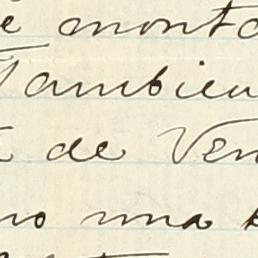 e monta
Tambien
de Ven
no una